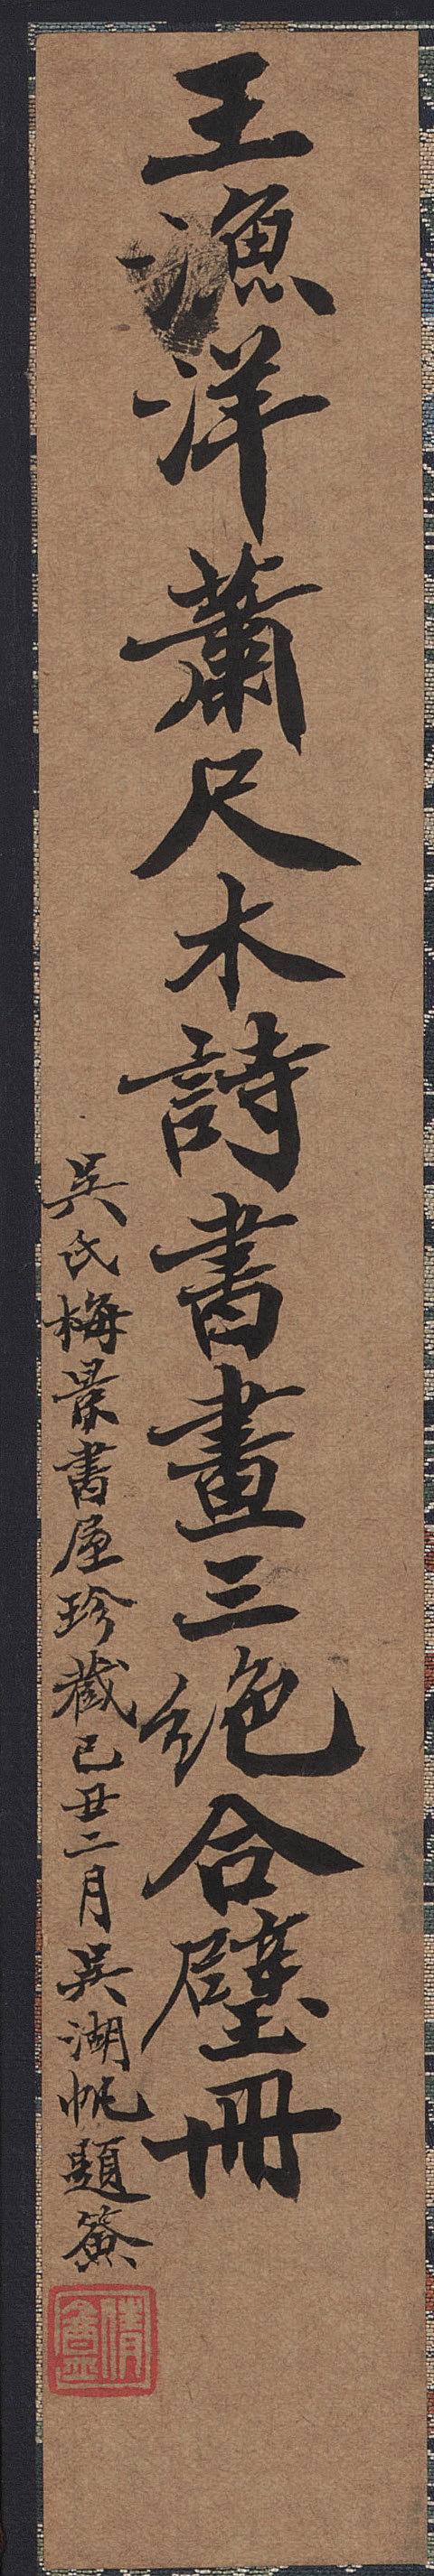 王漁洋蕭尺木詩書畫三絕合璧冊
吳氏梅景書屋珍藏己丑二月吳湖帆題簽
倩盦